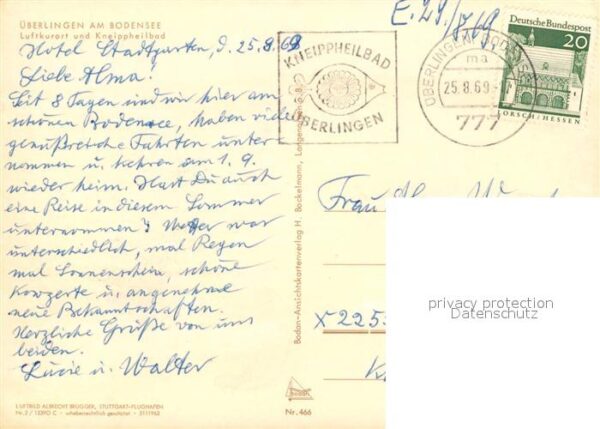 ÜBERLINGEN AM BODENSEE
Luftkurort und Kneippheilbad
Hotel Stadtgarten, d. 25.8.69
Liebe Alma!
Seit 8 Tagen sind wir hier am
schönen Bodensee, haben viele
genußreiche Fahrten unter-
nommen u. kehren am 1. 9.
wieder heim. Hast Du auch
eine Reise in diesem Sommer
unternommen? Wetter war
unterschiedlich, mal Regen
mal Sonnenschein, schöne
Konzerte u. angenehme
neue Bekanntschaften.
Herzliche Grüße von uns
beiden.
Lucie u. Walter
LUFTBILD ALBRECHT BRUGGER, STUTTGART-FLUGHAFEN
Nr. 2 / 15390 C · urheberrechtlich geschützt
Bodan-Ansichtskartenverlag H. Bockelmann, Langenargen a. B.
Nr. 466
KNEIPPHEILBAD
ÜBERLINGEN
ÜBERLINGEN, BODENSEE
ma
25.8.69
777
Deutsche Bundespost
20
LORSCH/HESSEN
Frau
X 225
privacy protection
Datenschutz